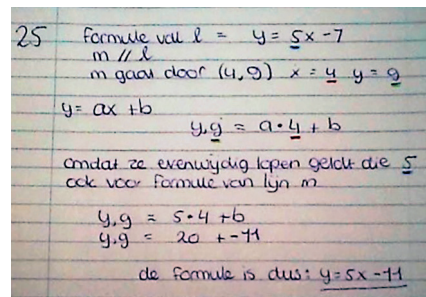 25 formule van l = y = 5x - 7
m // l
m gaat door (4,9) x = 4 y = 9
y = ax + b
y,9 = a • 4 + b
omdat ze evenwijdig lopen geldt die 5
ook voor formule van lijn m
y,9 = 5 • 4 + b
y,9 = 20 + -11
de formule is dus: y = 5x - 11